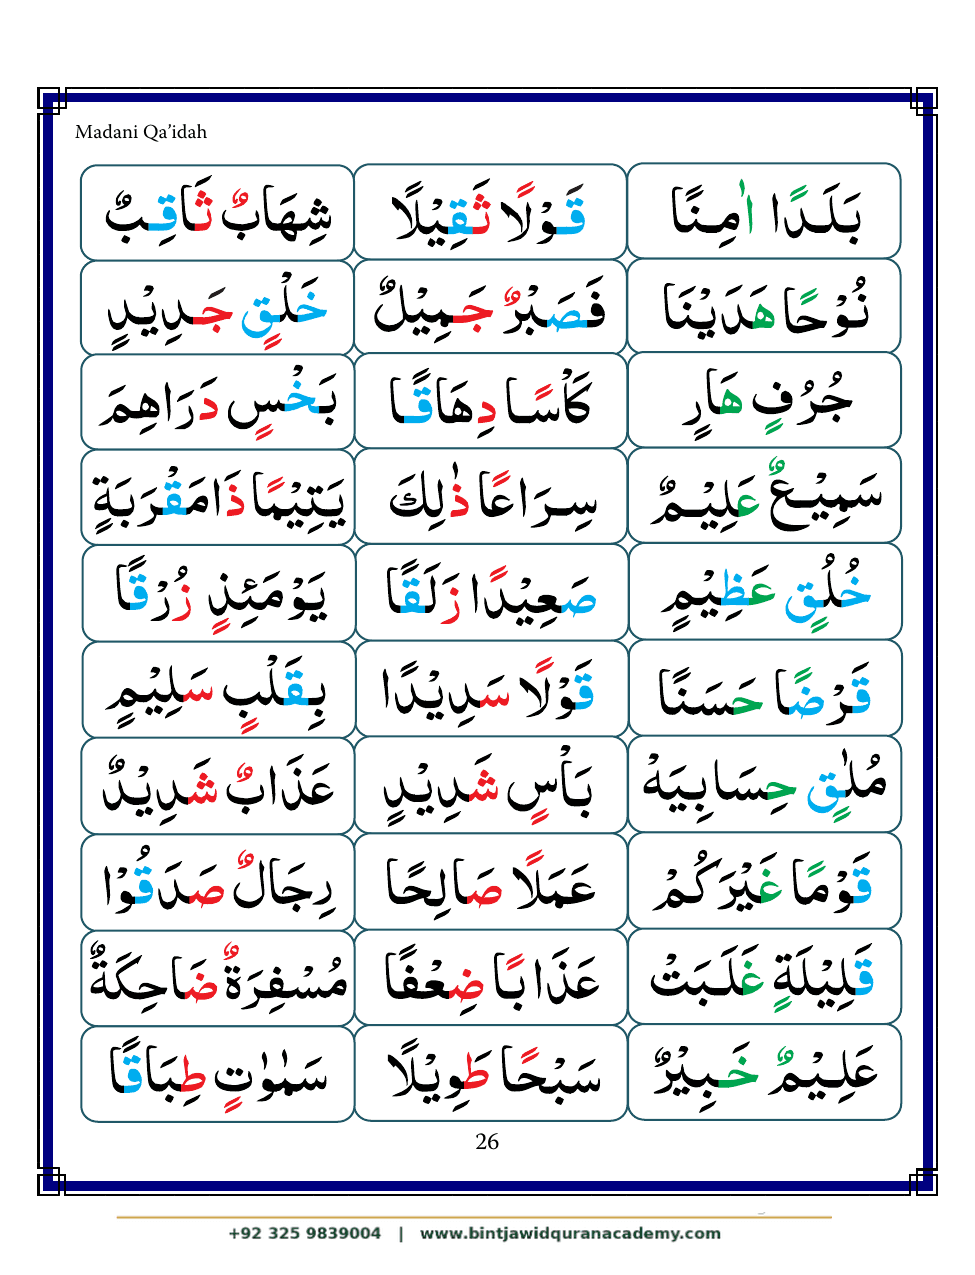 Madani Qa’idah
بَلَدًا اٰمِنًا
قَوْلًا ثَقِيْلًا
شِهَابٌ ثَاقِبٌ
نُوْحًا هَدَيْنَا
فَصَبْرٌ جَمِيْلٌ
خَلْقٍ جَدِيْدٍ
جُرُفٍ هَارٍ
كَاْسًا دِهَاقًا
بَخْسٍ دَرَاهِمَ
سَمِيْعٌ عَلِيْمٌ
سِرَاعًا ذٰلِكَ
يَتِيْمًا ذَامَقْرَبَةٍ
خُلُقٍ عَظِيْمٍ
صَعِيْدًا زَلَقًا
يَوْمَئِذٍ زُرْقًا
قَرْضًا حَسَنًا
قَوْلًا سَدِيْدًا
بِقَلْبٍ سَلِيْمٍ
مُلٰقٍ حِسَابِيَهْ
بَاْسٍ شَدِيْدٍ
عَذَابٌ شَدِيْدٌ
قَوْمًا غَيْرَكُمْ
عَمَلًا صَالِحًا
رِجَالٌ صَدَقُوْا
قَلِيْلَةٍ غَلَبَتْ
عَذَابًا ضِعْفًا
مُسْفِرَةٌ ضَاحِكَةٌ
عَلِيْمٌ خَبِيْرٌ
سَبْحًا طَوِيْلًا
سَمٰوٰتٍ طِبَاقًا
26
+92 325 9839004 | www.bintjawidquranacademy.com